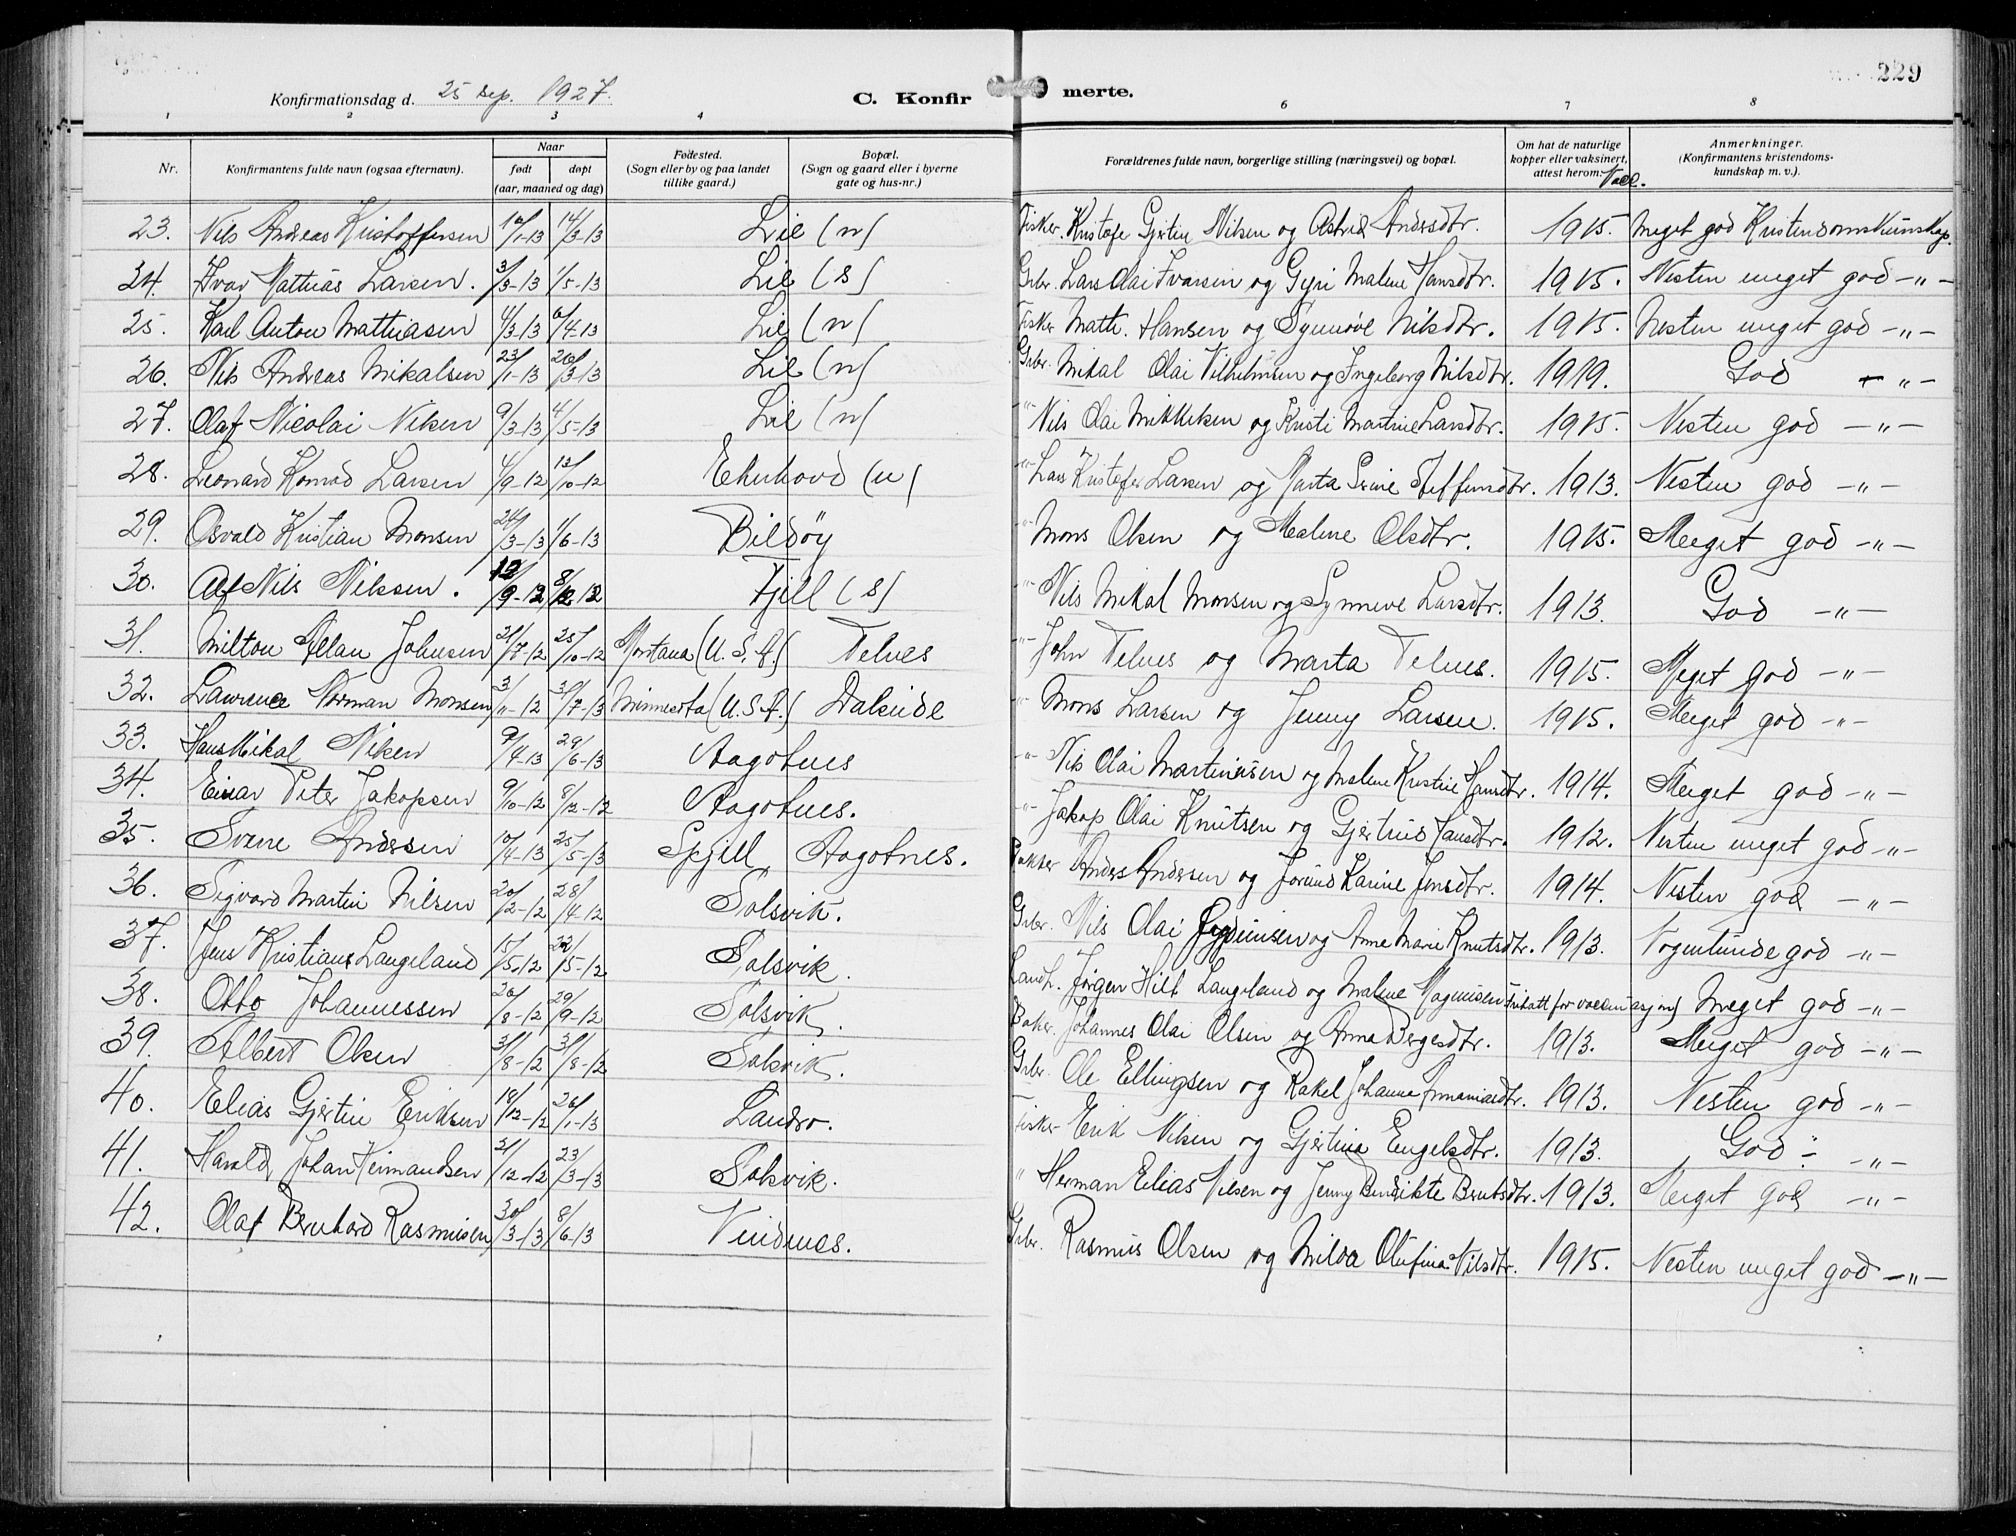 229
Konfirmationsdag d. 25 sep. 1927.
C. Konfir merte.
1 2 3 4 6 7 8
Nr. Konfirmantens fulde navn (ogsaa efternavn). Naar født døpt (aar, maaned og dag) Fødested. (Sogn eller by og paa landet tillike gaard.) Bopæl. (Sogn og gaard eller i byerne gate og hus-nr.) Forældrenes fulde navn, borgerlige stilling (næringsvei) og bopæl. Om hat de naturlige kopper eller vaksinert, attest herom: Vacc. Anmerkninger. (Konfirmantens kristendoms-kundskap m. v.).
23. Nils Andreas Kristoffersen 10/1-13 14/3-13 Lie (n) Fisker. Kristofe Gjertin Nilsen og Astrid Andersdtr. 1915. Meget god Kristendomskunskap.
24. Ivar Mattias Larsen. 3/3-13 1/5-13 Lie (s) Grbr. Lars Olai Ivarsen og Gyri Malene Hansdtr. 1915. Nesten meget god -"-
25. Karl Anton Mathiasen 4/3-13 6/4-13 Lie (n) Fisker Math. Hansen og Synnøve Nilsdtr. 1915. Nesten meget god -"-
26. Nils Andreas Mikalsen 23/1-13 26/3-13 Lie (n) Grbr. Mikal Olai Vilhelmsen og Ingeborg Nilsdtr. 1919. God -"-
27. Olaf Nicolai Nilsen 9/3-13 4/5-13 Lie (n) -"- Nils Olai Mikkelsen og Kristi Martine Larsdtr. 1915. Nesten god -"-
28. Leonard Konrad Larsen 4/9-12 13/10-12 Ekerhovd (n) -"- Lars Kristofer Larsen og Marta Serine Steffensdtr. 1913. Nesten god -"-
29. Osvald Kristian Monsen 24/3-13 1/6-13 Bildøy -"- Mons Olsen og Malene Olsdtr. 1915. Meget god -"-
30. Alf Nils Nilssen. 12/9-12 8/12-12 Fjell (s) -"- Nils Mikal Monsen og Synneve Larsdtr. 1913. God -"-
31. Milton Allan Johnsen 21/7-12 25/10-12 Montana (U.S.A.) Telnes -"- John Telnes og Marta Telnes. 1915. Meget god -"-
32. Lawrence Norman Monsen 3/11-12 3/7-13 Minnesota (U.S.A.) Dalseide -"- Mons Larsen og Jenny Larsen. 1915. Meget god -"-
33. Hans Mikal Nilsen 9/4-13 29/6-13 Aagotnes -"- Nils Olai Martinussen og Malene Kristine Hansdtr. 1914. Meget god -"-
34. Einar Peter Jakopsen 9/10-12 8/12-12 Aagotnes. -"- Jakop Olai Knutsen og Gjertrud Hansdtr. 1912. Nesten meget god -"-
35. Sverre Andersen 10/4-13 25/5-13 Fjell, Aagotnes. Bakker Anders Andersen og Jorund Karine Jensdtr. 1914. Nesten god -"-
36. Sigvard Martin Nilsen 20/2-12 28/4-12 Solsvik. Grbr. Nils Olai og Anne Marie Knutsdtr. 1913. Nogenlunde god -"-
37. Jens Kristians Langeland 15/5-12 22/5-12 Solsvik. Landh. Jørgen Hilt Langeland og Malene Magnusen Fritatt for vacsinasjon) Meget god -"-
38. Otto Johannessen 26/8-12 29/9-12 Solsvik. Baker. Johannes Olai Olsen og Anna Bergesdtr. 1913. Meget god -"-
39. Albert Olsen 3/8-12 31/8-12 Solsvik. Grbr. Ole Ellingsen og Rakel Johanne Ananiasdtr. 1913. Nesten god -"-
40. Elias Gjertin Eriksen 18/12-12 26/1-13 Landro. Fisker Erik Nilsen og Gjertine Engelsdtr. 1913. God -"-
41. Harald Johan Hermandsen 31/12-12 23/3-13 Solsvik. " Herman Elias Nilsen og Jenny Bendikte Berntsdtr. 1913. Meget god -"-
42. Olaf Bernhard Rasmusen 30/3-13 8/6-13 Vindnes. Grbr. Rasmus Olsen og Milda Olufina Nilsdtr. 1915. Nesten meget god -"-